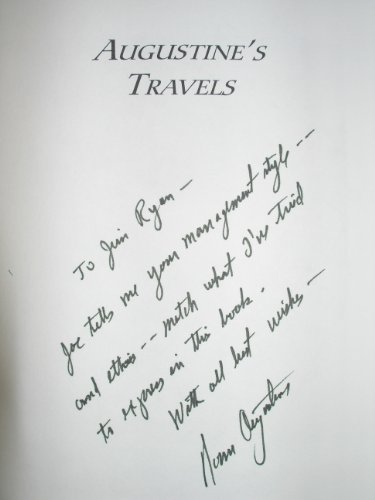 AUGUSTINE'S
TRAVELS
To Jim Ryan —
Joe tells me your management style --
and ethics -- match what I've tried
to express in this book.
With all best wishes —
Norm Augustine